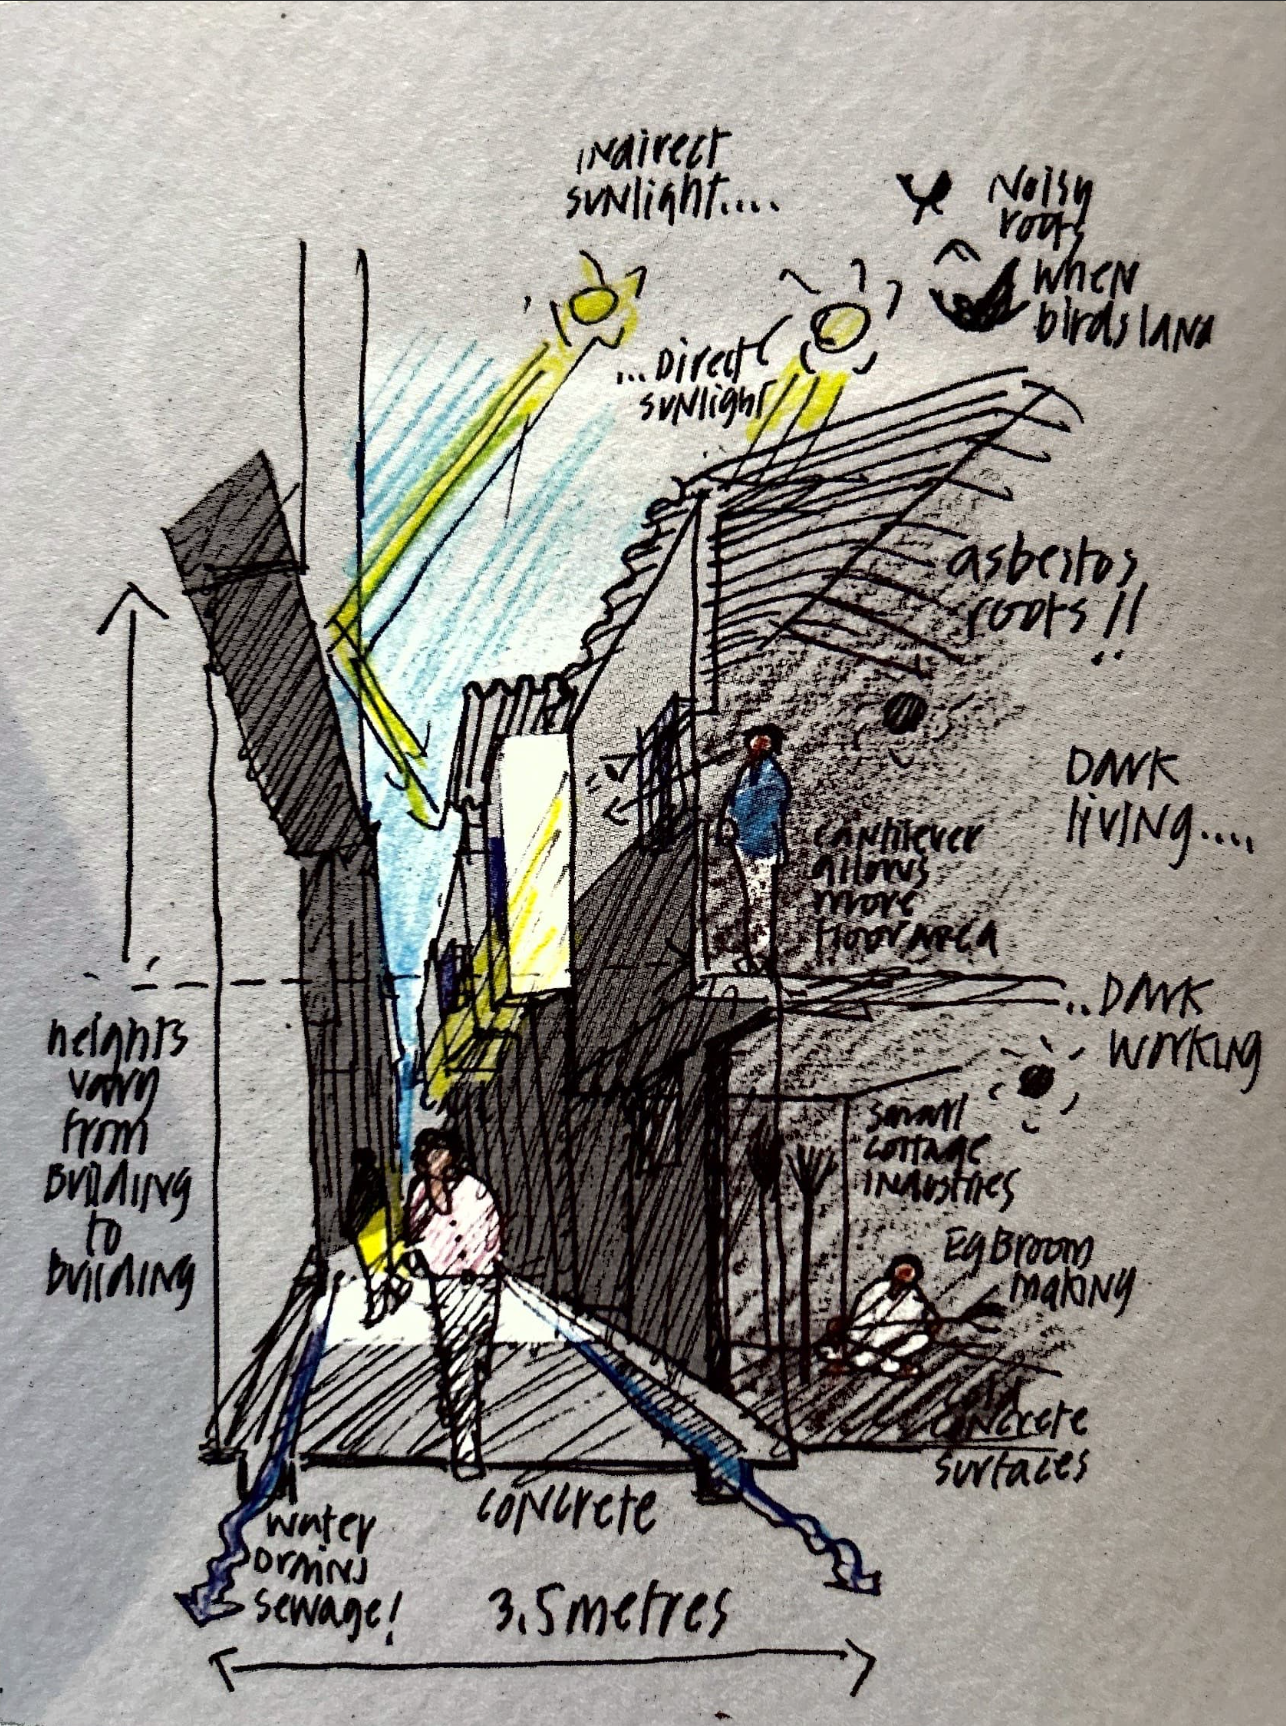 indirect
sunlight....
Noisy
roofs
when
birds land
...Direct
sunlight
asbestos
roofs!!
Dark
living....
cantilever
allows
more
floor area
..Dark
working
heights
vary
from
building
to
building
small
cottage
industries
Eg Broom
making
concrete
surfaces
concrete
water
drains
sewage!
3.5 metres